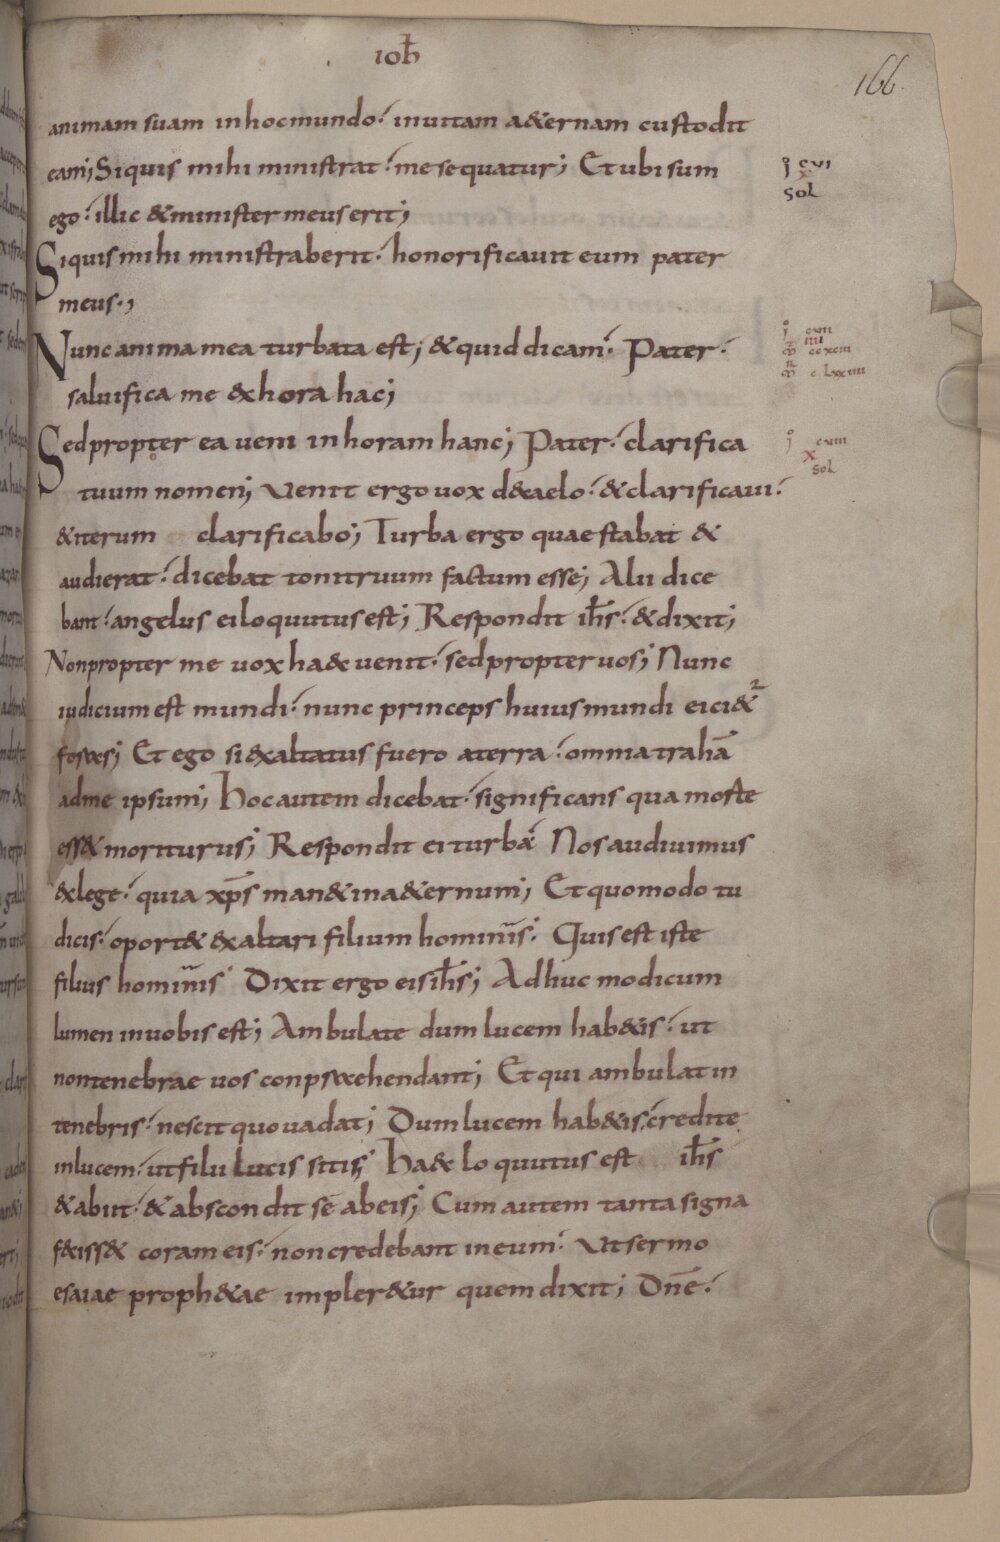 ioħ
166
animam suam inhocmundo. inuitam a&ernam custodit
eam; Siquis mihi ministrat. mesequatur; Etubi sum
ego. illic &minister meus erit;
Siquis mihi ministraberit. honorificauit eum pater
meus.,
Nunc anima mea turbata est; &quid dicam. Pater.
saluifica me &xhora hac;
Sedpropter ea ueni in horam hanc; Pater. clarifica
tuum nomen; Venit ergo uox d&caelo. &clarificaui.
&iterum clarificabo; Turba ergo quae stabat &
audierat. dicebat tonitruum factum esse; Alii dice
bant. angelus ei loquutus est; Respondit ih̄s. &dixit;
Nonpropter me uox ha&c uenit. sedpropter uos; Nunc
iudicium est mundi. nunc princeps huius mundi eici&2
foras; Et ego si &xaltatus fuero aterra. omnia trahā
adme ipsum; Hoc autem dicebat. significans qua morte
ess& moriturus; Respondit ei turba Nos audiuimus
&lege. quia xp̄s man& ina&ernum; Et quomodo tu
dicis. oport& &xaltari filium hominis. Quis est iste
filius hominis Dixit ergo eis ih̄s; Adhuc modicum
lumen inuobis est; Ambulate dum lucem hab&is. ut
nontenebrae uos conpraehendant; Et qui ambulat in
tenebris. nescit quo uadat; Dum lucem hab&is. credite
inlucem. ut filii lucis sitis; Ha&c loquutus est ih̄s
&abiit. &abscondit se abeis; Cum autem tanta signa
f&ciss& coram eis. non credebant ineum. Ut sermo
esaiae proph&ae impler&ur quem dixit; Dn̄e.
i cui
x
sol
i cuii
iiii
i cuiii
x
sol